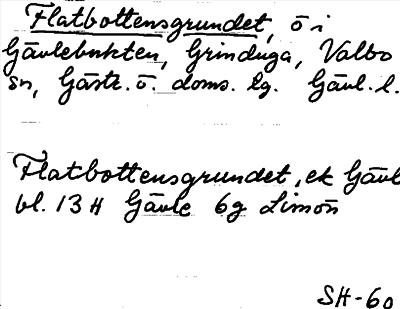 Flatbottensgrundet, ö i
Gävlebukten, Grinduga, Valbo
sn, Gästr. ö. doms. lg. Gävl. l.
Flatbottensgrundet, ek Gävl
bl. 13 H Gävle 6g Limön
SH-60